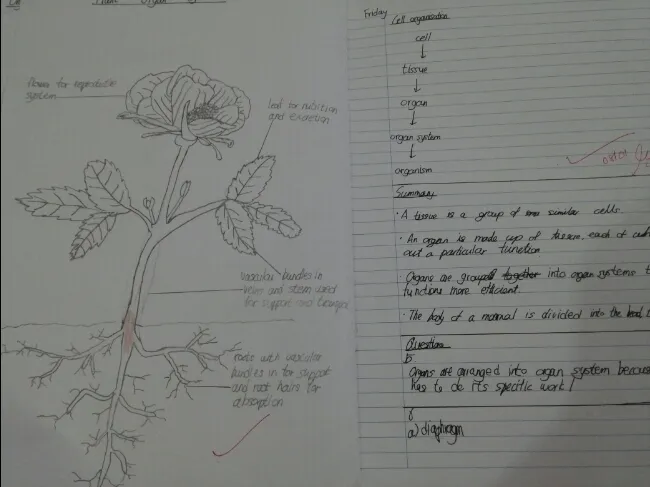 Plant Organ
flower for reproductive
system
leaf for nutrition
and excretion
vascular bundles in
veins and stem used
for support and transport
roots with vascular
bundles in for support
and root hairs for
absorption
Friday
Cell organisation
cell
tissue
organ
organ system
organism
Summary
· A tissue is a group of similar cells.
· An organ is made up of tissues, each of
out a particular function
· Organs are grouped together into organ systems
functions more efficient.
· The body of a mammal is divided into the head
Question
5.
Organs are arranged into organ system because
has to do its specific work!
a) diaphragm